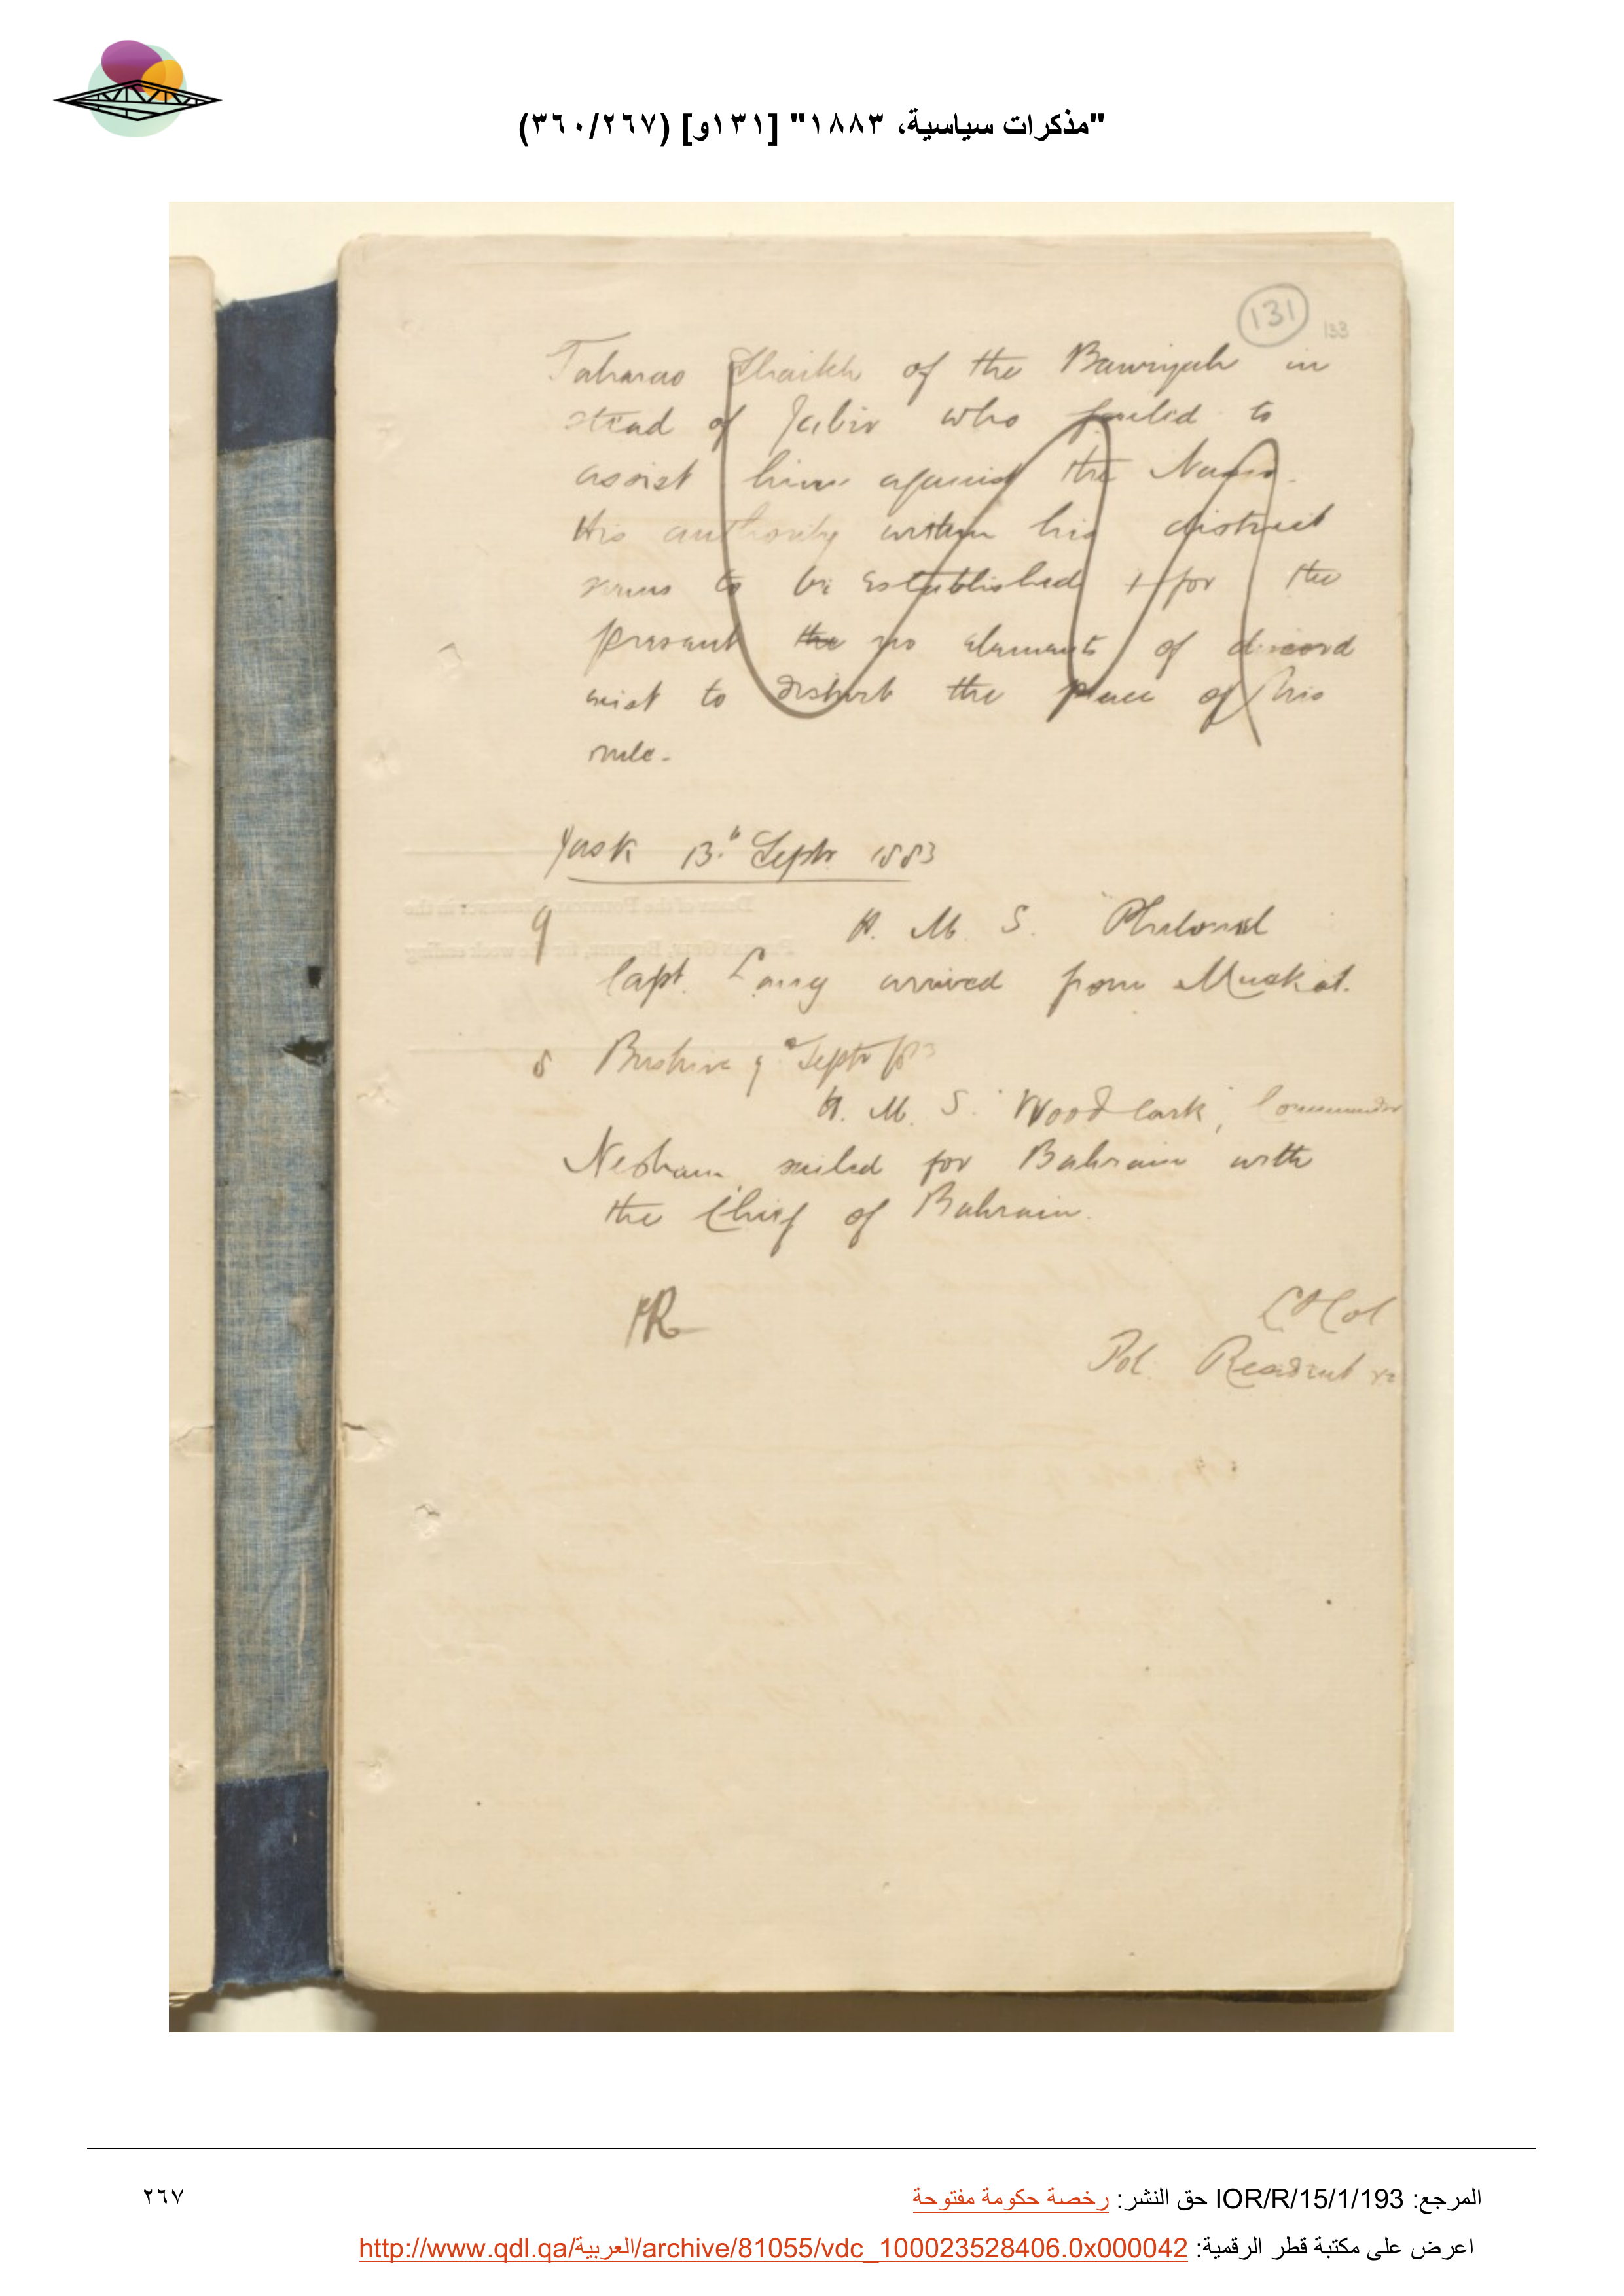 "مذكرات سياسية، ١٨٨٣" [١٣١و] (٣٦٠/٢٦٧)
131
133
Shaikh of the Bawiyah in
stead of Jabir who failed to
assist him against the
His authority within his district
seems to be established + for the
present the no elements of discord
exist to disturb the peace of his
rule.
Jask 13th Septr 1883
9 H. M. S. Philomel
Capt. Lang arrived from Muskat.
8 Bushire 9th Septr 1883
H. M. S. "Woodlark", Commander
Nesham, sailed for Bahrain with
the Chief of Bahrain.
Lt Col
Pol. Resident
المرجع: IOR/R/15/1/193 حق النشر: رخصة حكومة مفتوحة
٢٦٧
اعرض على مكتبة قطر الرقمية: http://www.qdl.qa/العربية/archive/81055/vdc_100023528406.0x000042